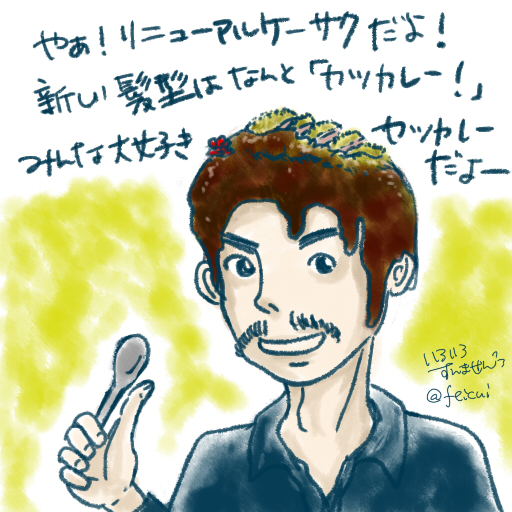 やぁ！リニューアルケーサクだよ！
新しい髪型はなんと「カツカレー！」
みんな大丈好き
カツカレー
だよー
いろいろ
すんませんっ
@feicui